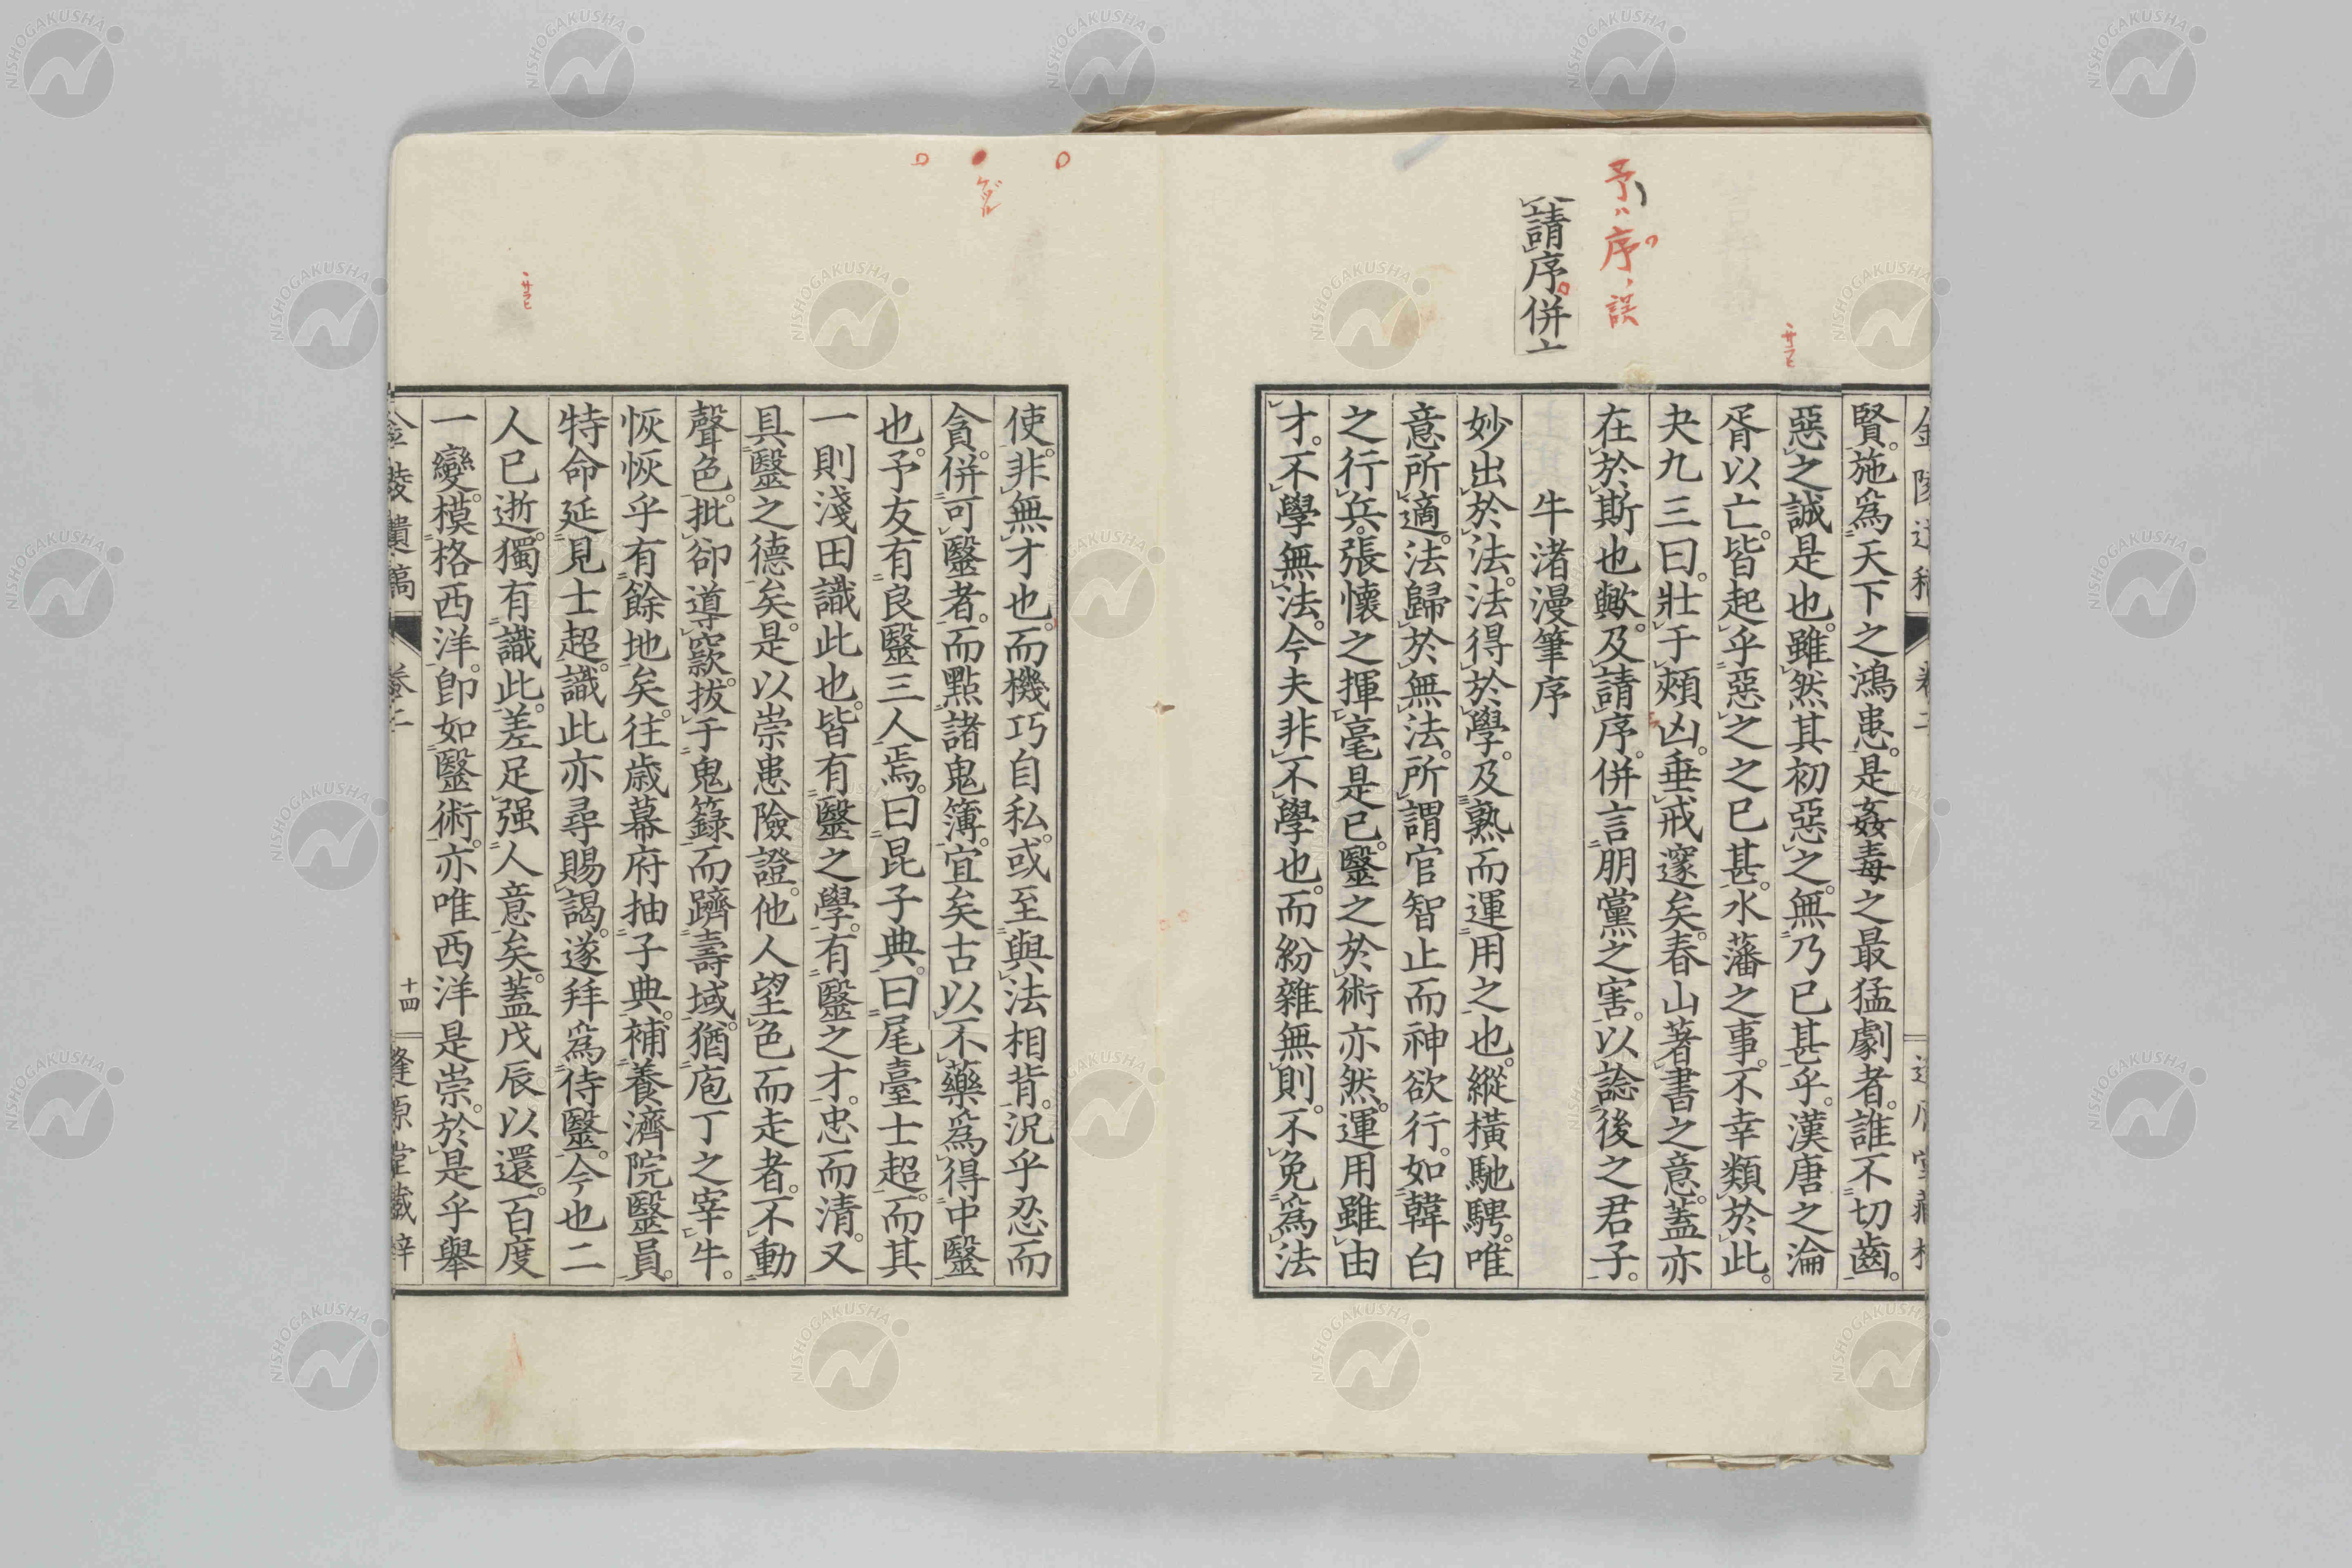 予ハ序ノ誤
請序。併
サラヒ
賢。施爲天下之鴻患。是姦毒之最猛劇者。誰不切齒。
惡之誠是也。雖然其初惡之。無乃已甚乎。漢唐之淪
胥以亡。皆起乎惡之之已甚。水藩之事。不幸類於此。
夬九三曰。壯于頄凶。垂戒邃矣。春山著書之意。蓋亦
在於斯也歟。及請序。併言朋黨之害。以諗後之君子。
牛渚漫筆序
妙出於法。法得於學。及熟而運用之也。縱橫馳騁。唯
意所適。法歸於無法。所謂官智止而神欲行。如韓白
之行兵。張懷之揮毫是已。醫之於術亦然。運用雖由
才。不學無法。今夫非不學也。而紛雜無則。不免爲法
使。非無才也。而機巧自私。或至與法相背。況乎忍而
貪。併可醫者。而點諸鬼簿。宜矣古以不藥爲得中醫
也。予友有良醫三人焉。曰昆子典。曰尾臺士超。而其
一則淺田識此也。皆有醫之學。有醫之才。忠而清。又
具醫之德矣。是以崇患險證。他人望色而走者。不動
聲色。批卻導窾。拔于鬼籙。而躋壽域。猶庖丁之宰牛。
恢恢乎有餘地矣。往歲幕府抽子典。補養濟院醫員。
特命延見士超。識此亦尋賜謁。遂拜爲侍醫。今也二
人已逝。獨有識此。差足强人意矣。蓋戊辰以還。百度
一變。模格西洋。卽如醫術。亦唯西洋是崇。於是乎舉
卷二
十四
逢原堂藏梓
サラヒ